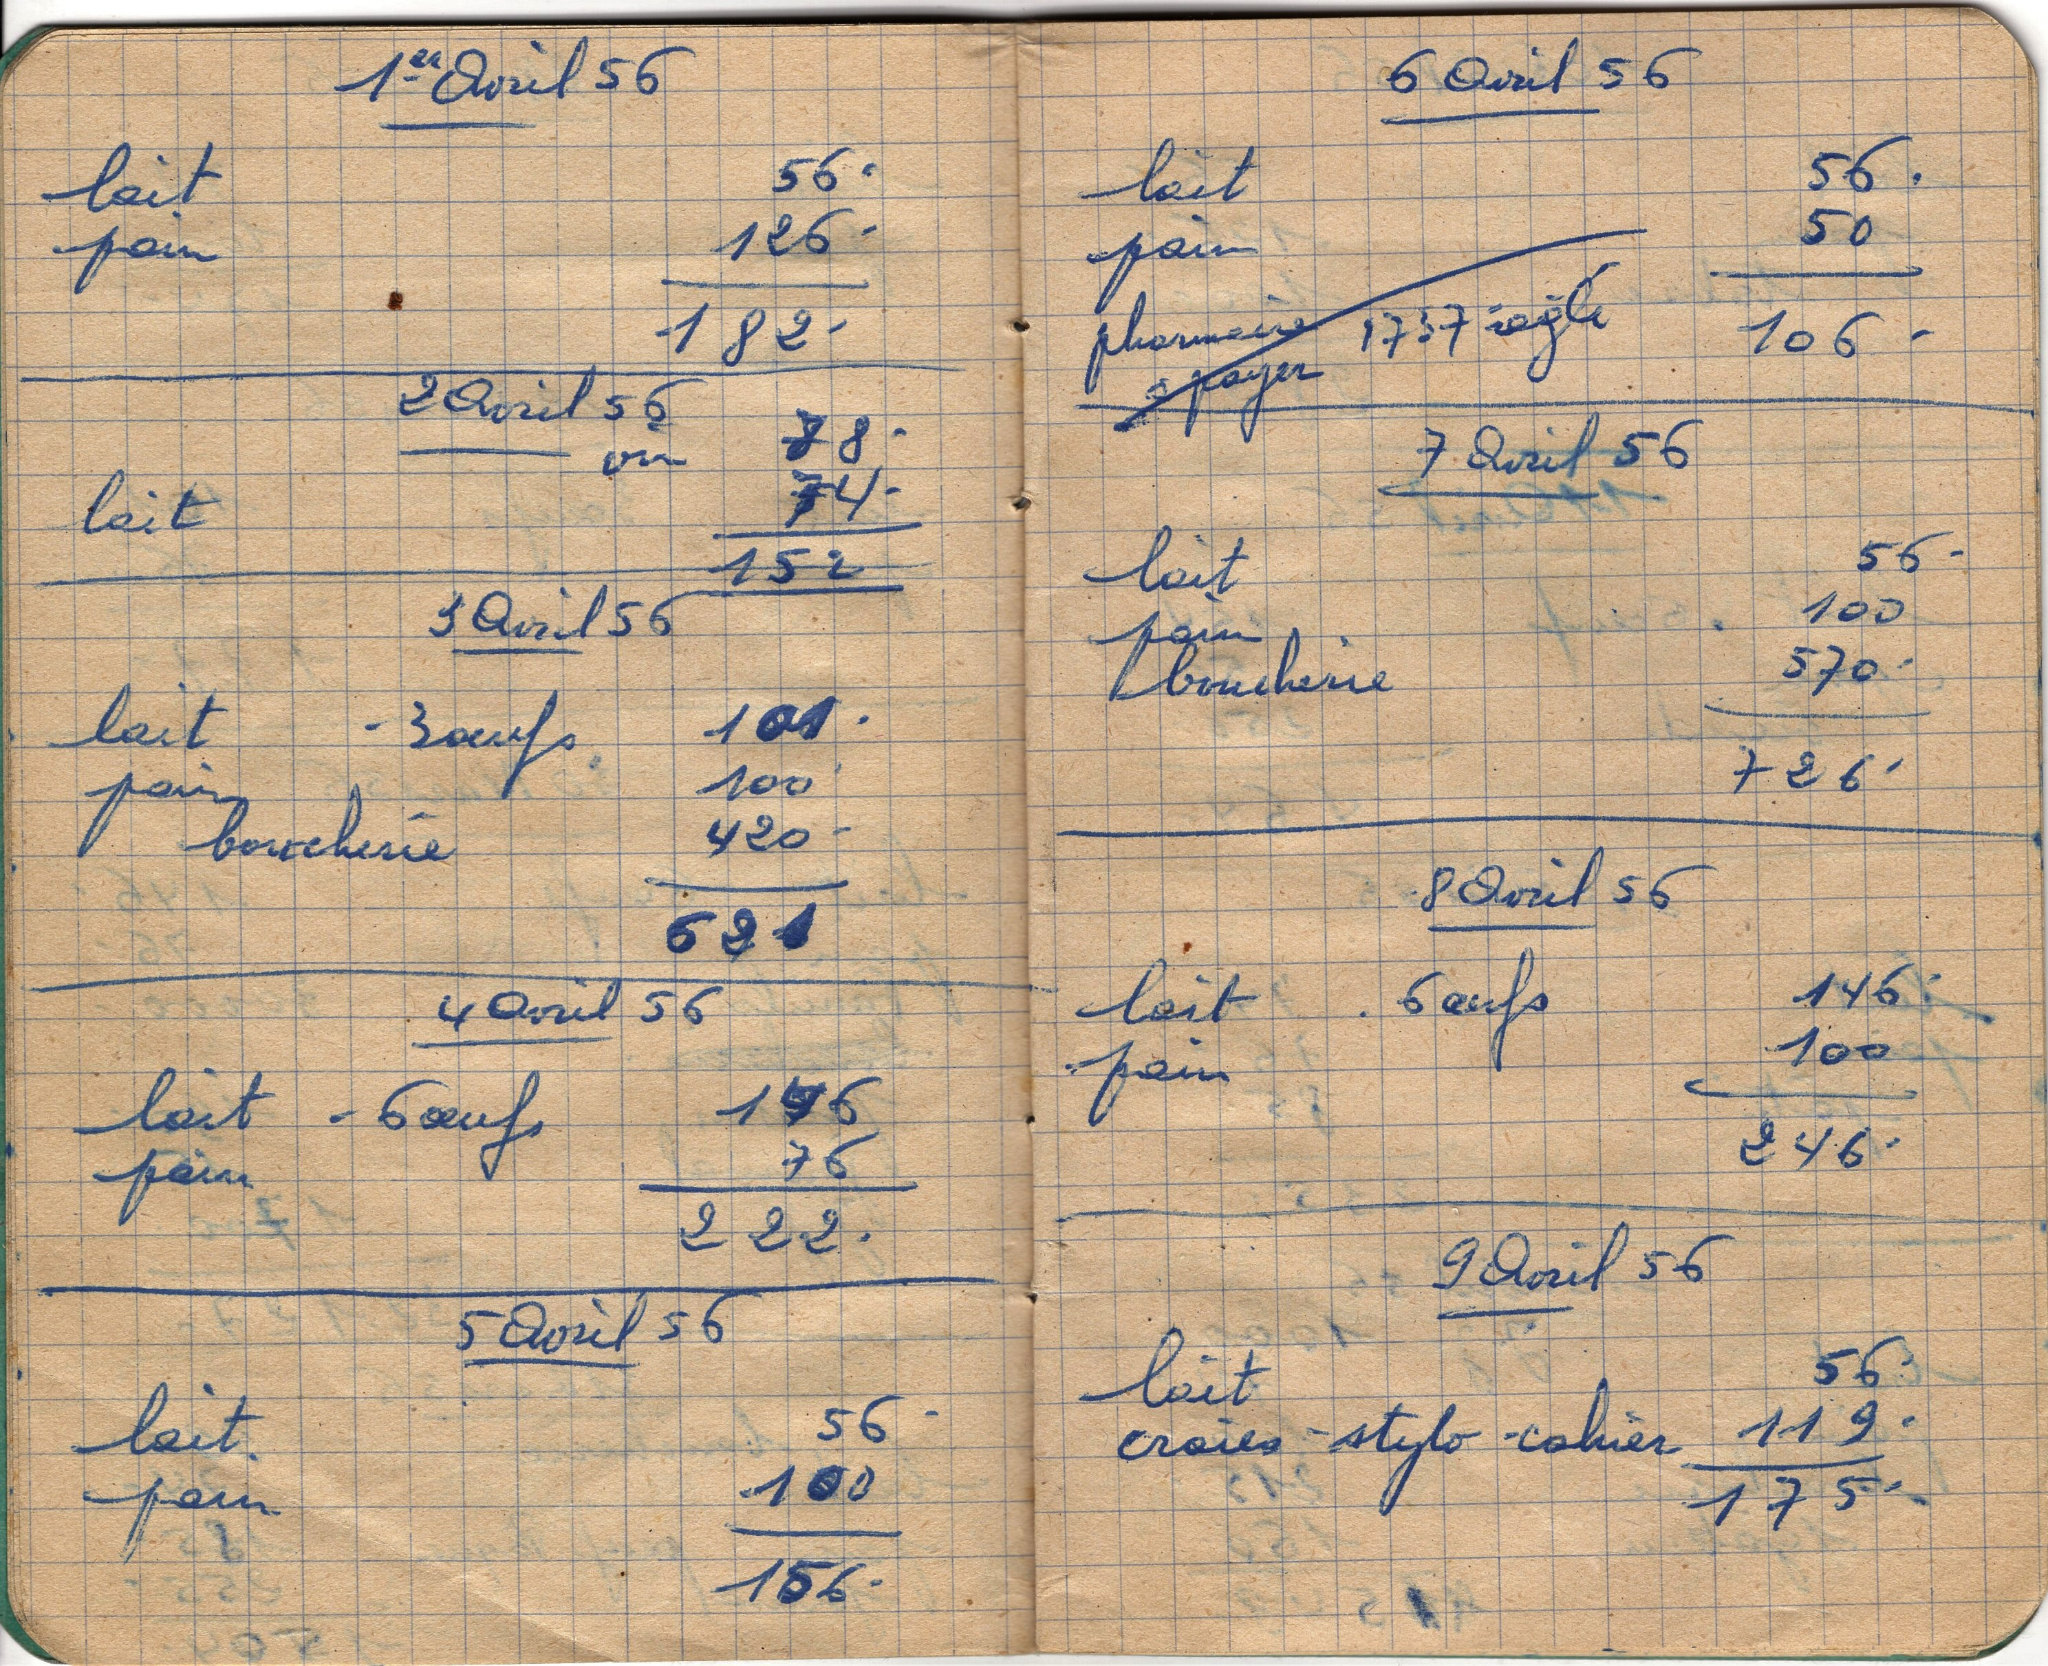 1er Avril 56
lait 56.
pain 126.
182.
2 Avril 56
vin 78.
lait 74.
152
3 Avril 56
lait - 3 œufs 101.
pain 100
boucherie 420.
621
4 Avril 56
lait - 6 œufs 146
pain 76
222.
5 Avril 56
lait. 56.
pain 100
156.
6 Avril 56
lait 56.
pain 50
pharmacie 1737 réglé 106.
à payer
7 Avril 56
lait 56.
pain 100
boucherie 570.
726.
8 Avril 56
lait . 6 œufs 146.
pain 100
246.
9 Avril 56
lait 56.
craies - stylo - cahier 119.
175.